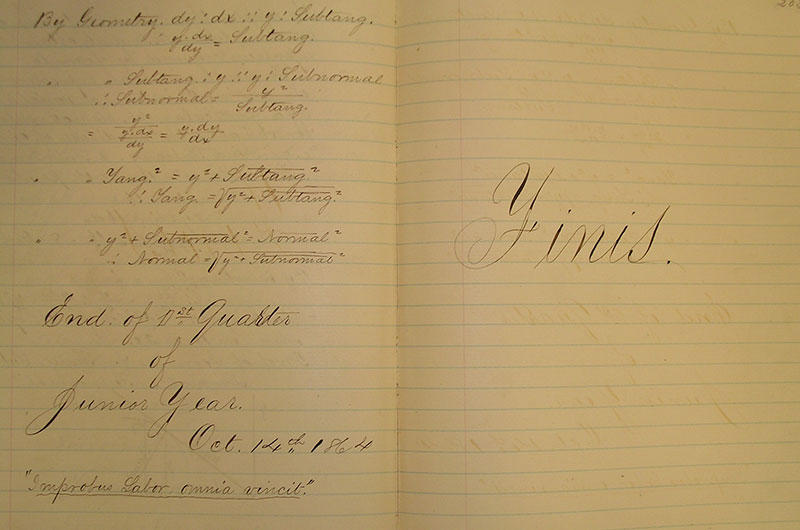 By Geometry. dy : dx :: y : Subtang.
∴ y.dx/dy = Subtang.
" " Subtang : y :: y : Subnormal
∴ Subnormal = y²/Subtang.
= y²/(y.dx/dy) = y.dy/dx
" " Tang.² = y² + Subtang²
∴ Tang. = √y² + Subtang.²
" " y² + Subnormal² = Normal²
∴ Normal = √y² + Subnormal²
End of 1st Quarter
of
Junior Year.
Oct. 14th 1864
"Improbus Labor omnia vincit."
Finis.